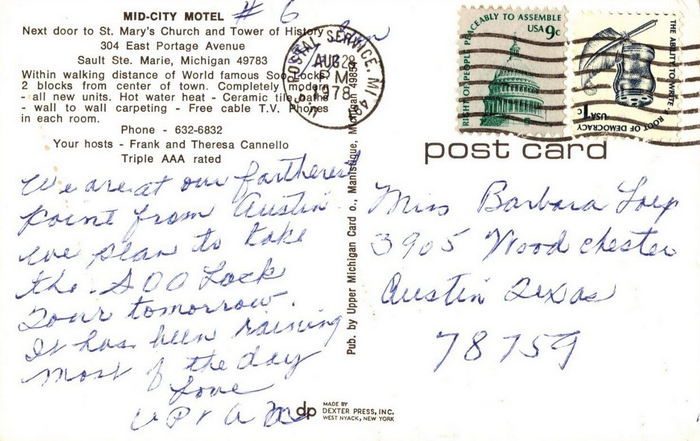 MID-CITY MOTEL # 6
Next door to St. Mary's Church and Tower of History
304 East Portage Avenue
Sault Ste. Marie, Michigan 49783
Within walking distance of World famous Soo Locks.
2 blocks from center of town. Completely modern
- all new units. Hot water heat - Ceramic tile baths
- wall to wall carpeting - Free cable T.V. Phones
in each room.
Phone - 632-6832
Your hosts - Frank and Theresa Cannello
Triple AAA rated
We are at our fartherest
point from Austin.
We plan to take
the SOO Lock
Tour tomorrow.
It has been raining
most of the day
Love
Pub. by Upper Michigan Card o., Manistique, Michigan 49854
dp MADE BY
DEXTER PRESS, INC.
WEST NYACK, NEW YORK
U.S. POSTAL SERVICE, MI
AUG 28
PM
1978
RIGHT OF PEOPLE PEACEABLY TO ASSEMBLE
USA 9c
THE ABILITY TO WRITE
ROOT OF DEMOCRACY
USA 1c
post card
Miss Barbara
3905 Woodchester
Austin Texas
78759